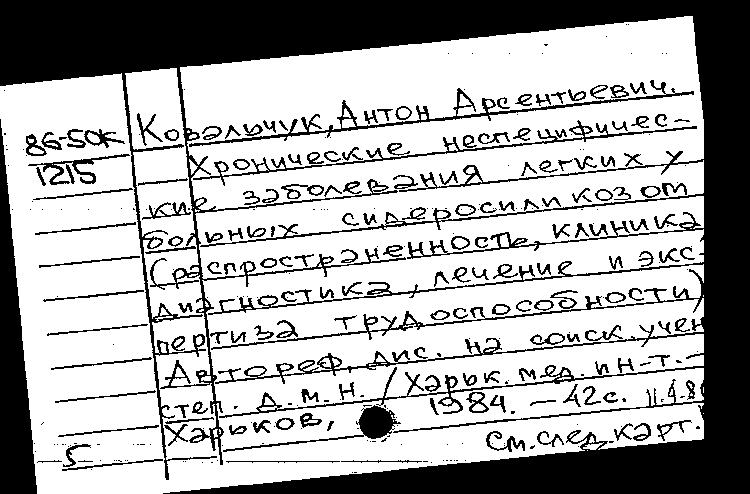 86-50К
1215
Ковальчук, Антон Арсентьевич.
Хронические неспецифичес-
кие заболевания легких у
больных сидеросиликозом
(распространенность, клиника
диагностика, лечение и экс-
пертиза трудоспособности)
Автореф. дис. на соиск. учен
степ. д.м.н. / Харьк. мед. ин-т. -
Харьков, 1984. - 42с.
См. след. карт.
5